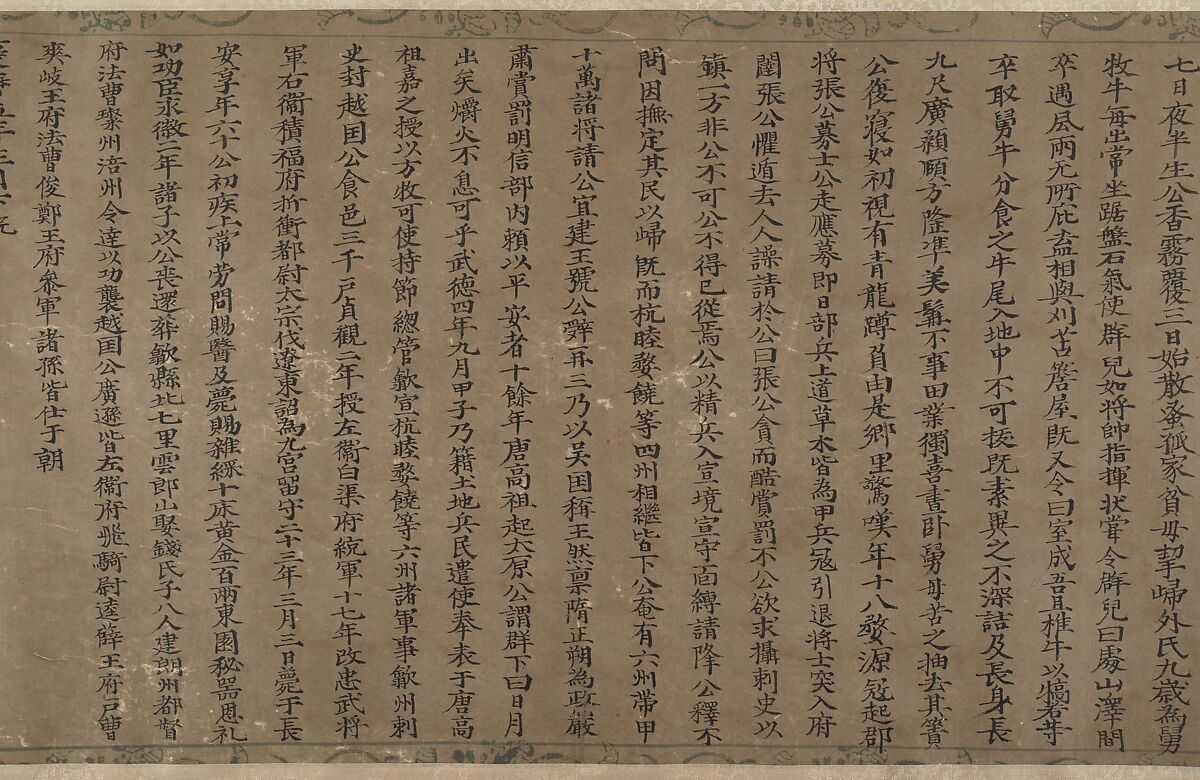 七日夜半生公香霧覆三日始散蚤孤家貧母挈歸外氏九歲為舅
牧牛每出常坐踞盤石氣使群兒如將帥指揮狀甞令群兒曰處山澤間
卒遇風雨无所庇盍相與刈苫簷屋既又令曰室成吾且椎牛以犒若等
卒取舅牛分食之牛尾入地中不可拔既素異之不深詰及長身長
九尺廣顙頤方隆準美鬚不事田業獨喜晝卧舅母苦之抽去其簀
公復寢如初視有青龍蹲負由是鄉里驚嘆年十八婺源冦起郡
將張公募士公走應募即日部兵上道草木皆為甲兵冦引退將士突入府
闔張公懼遁去人人譟請於公曰張公貪而酷賞罰不公欲求攝刺史以
鎮一方非公不可公不得已從焉公以精兵入宣境宣守面縛請降公釋不
問因撫定其民以歸既而杭睦婺饒等四州相繼皆下公奄有六州帶甲
十萬諸將請公宜建王號公辤再三乃以吳国稱王然禀隋正朔為政嚴
肅賞罰明信部內賴以平安者十餘年唐高祖起太原公謂群下曰日月
出矣爝火不息可乎武德四年九月甲子乃籍土地兵民遣使奉表于唐高
祖嘉之授以方牧可使持節緫管歙宣杭睦婺饒等六州諸軍事歙州刺
史封越国公食邑三千戶貞觀二年授左衞白渠府統軍十七年改忠武將
軍右衞積福府折衝都尉太宗伐遼東詔為九宮留守二十三年三月三日薨于長
安享年六十公初疾上常勞問賜醫及薨賜雜綵十床黃金百兩東園秘器恩礼
如功臣永徽二年諸子以公喪還葬歙縣北七里雲郎山娶錢氏子八人建朗州都督
府法曹璨州涪州令達以功襲越国公廣遜皆左衞府飛騎尉逵薛王府戶曹
爽岐王府法曹俊鄭王府叅軍諸孫皆仕于朝